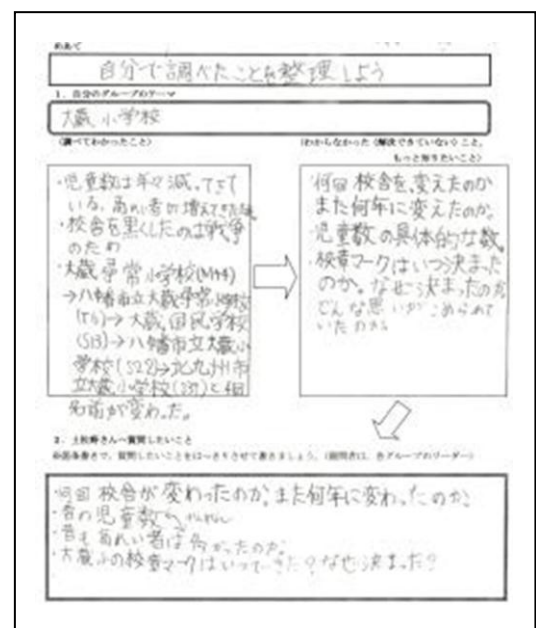 めあて
自分で調べたことを整理しよう
1．自分のグループのテーマ
大蔵小学校
(調べてわかったこと)
(わからなかった（解決できていない）こと、
もっと知りたいこと)
・児童数は年々減ってきて
いる。高れい者が増えてきた
・校舎を黒くしたのは戦争
のため
・大蔵尋常小学校(M44)
→八幡市立大蔵尋常小学校
→大蔵国民学校
→八幡市立大蔵小
学校(S22)→北九州市
立大蔵小学校 と4回
名前が変わった。
・何回校舎を変えたのか
また何年に変えたのか。
・児童数の具体的な数。
・校章マークはいつ決まった
のか。なぜ決まったのか
どんな思いがこめられて
いたのか
2．さんへ質問したいこと
箇条書きで、質問したいことをはっきりさせて書きましょう。(質問者は、各グループのリーダー)
・何回校舎が変わったのか。また何年に変わったのか。
・昔の児童数
・昔も高れい者は多かったのか。
・大蔵小の校章マークはいつできた？なぜ決まった？